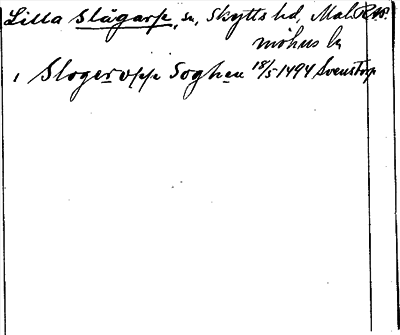 Lilla Slågarp, sn, Skytts hd, Mal
möhus l
1 Slogeropp Soghen 18/5 1494 Svenstorp